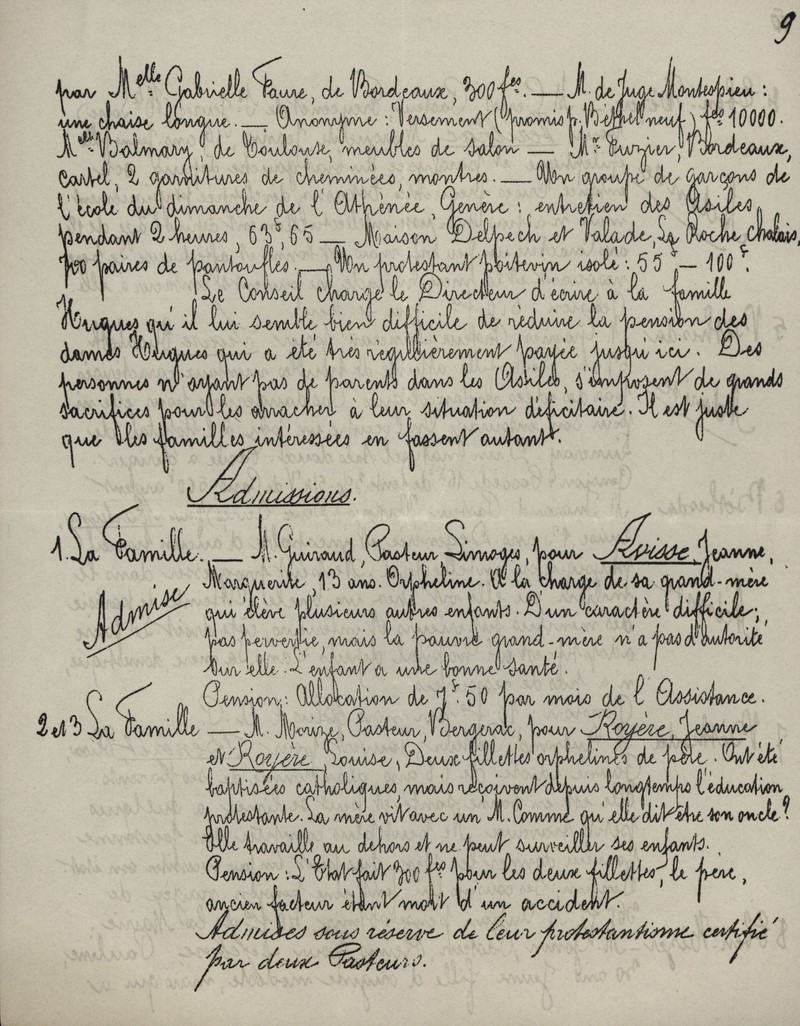 9
par Melle Gabrielle Faure, de Bordeaux, 300 fcs. — M. de Juge Montespieu :
une chaise longue. — Anonyme : Versement (promis p. Béthel neuf) fcs 10000.
Melle Balmary, de Toulouse, meubles de salon — Mr Fuzier, Bordeaux,
cartel, 2 garnitures de cheminées, montres. — Un groupe de garçons de
l'école du dimanche de l'Athénée, Genève : entretien des Asiles
pendant 2 heures, 63f,65 — Maison Delpech et Valade, La Roche chalais,
paires de pantoufles. — Un protestant poitevin isolé : 55f — 100f.
Le Conseil charge le Directeur d'écrire à la famille
Hugues qu'il lui semble bien difficile de réduire la pension des
dames Hugues qui a été très régulièrement payée jusqu'ici. Des
personnes n'ayant pas de parents dans les Asiles, s'imposent de grands
sacrifices pour les arracher à leur situation déficitaire. Il est juste
que les familles intéressées en fassent autant.
Admissions.
1. La Famille. — M. Guiraud, Pasteur Limoges, pour Avisse, Jeanne,
Marguerite, 13 ans. Orpheline. A la charge de sa grand-mère
Admise
qui élève plusieurs autres enfants. D'un caractère difficile ;
pas pervertie, mais la pauvre grand-mère n'a pas d'autorité
sur elle. L'enfant a une bonne santé.
Pension : Allocation de 7f.50 par mois de l'Assistance.
2 et 3 La Famille — M. Morize, Pasteur, Bergerac, pour Royère, Jeanne
et Royère, Louise, Deux fillettes orphelines de père. Ont été
baptisées catholiques mais reçoivent depuis longtemps l'éducation
protestante. La mère vit avec un M. Comme qu'elle dit être son oncle ?
Elle travaille au dehors et ne peut surveiller ses enfants.
Pension : L'Etat fait 300 fcs pour les deux fillettes, le père,
ancien facteur étant mort d'un accident.
Admises sous réserve de leur protestantisme certifié
par deux Pasteurs.